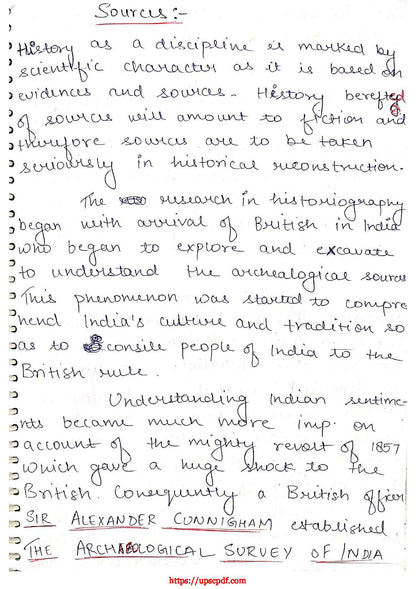 Sources:-
History as a discipline is marked by
scientific character as it is based on
evidences and sources. History berefted
of sources will amount to fiction and
therefore sources are to be taken
seriously in historical reconstruction.
The research in historiography
began with arrival of British in India
who began to explore and excavate
to understand the archealogical sources
This phenomenon was started to compre
hend India's culture and tradition so
as to consile people of India to the
British rule.
Understanding Indian sentime-
nts became much more imp. on
account of the mighty revolt of 1857
which gave a huge shock to the
British. Consequently a British officer
SIR ALEXANDER CUNNIGHAM established
THE ARCHAEOLOGICAL SURVEY OF INDIA
https://upscpdf.com